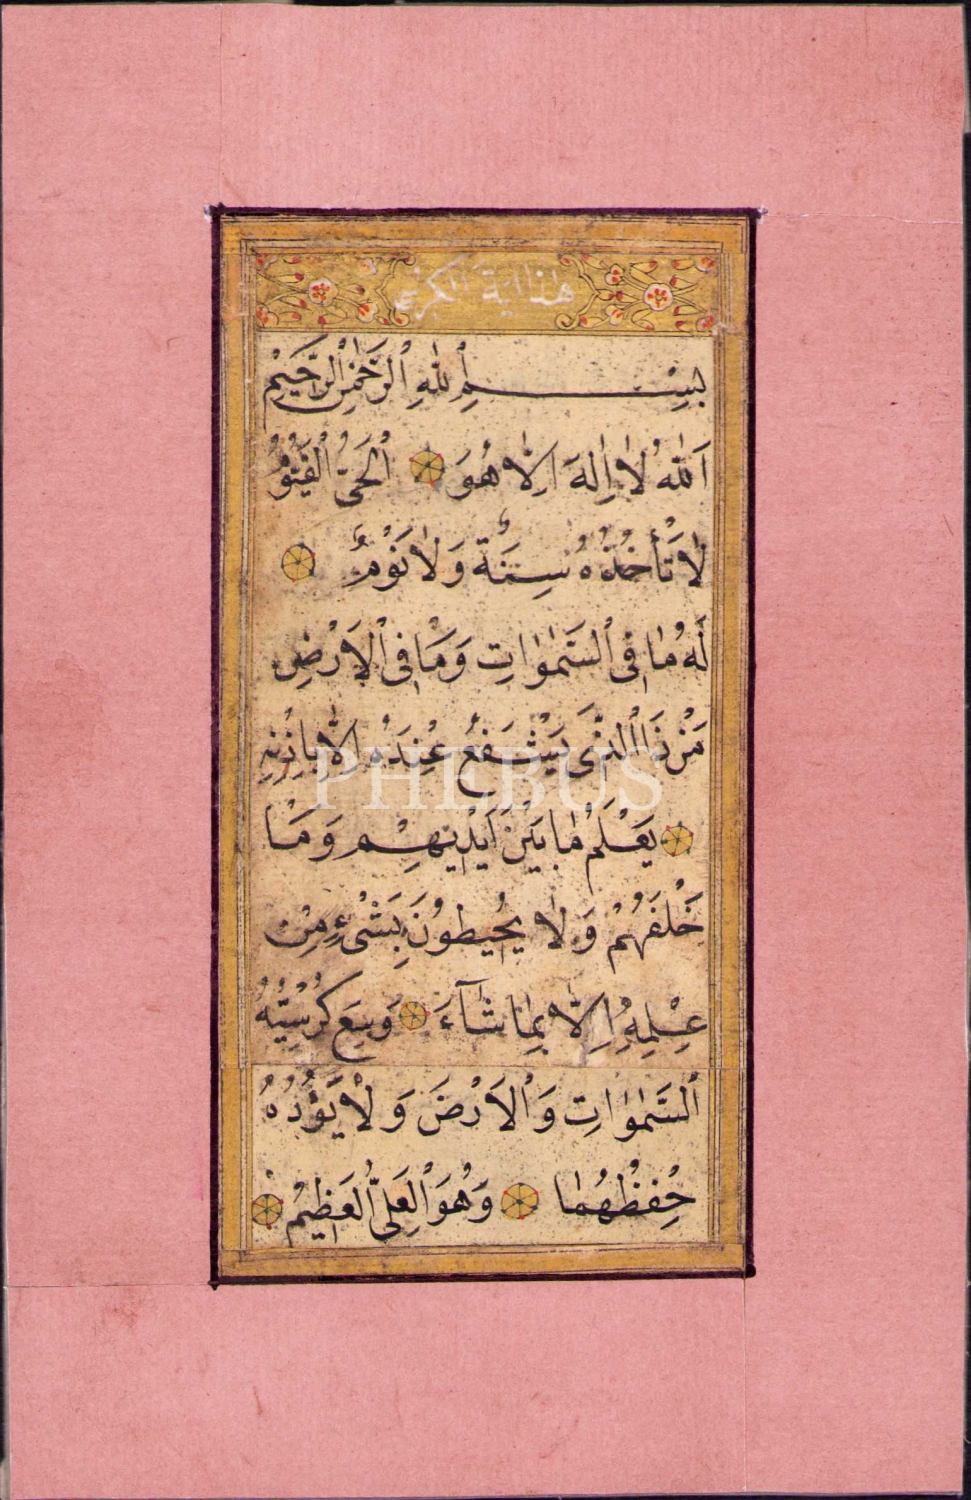 هذا اية الكرسى
بِسْمِ اللهِ الرَّحْمٰنِ الرَّحِيمِ
اَللهُ لَا اِلٰهَ اِلَّا هُوَ اَلْحَىُّ الْقَيُّومُ
لَا تَأْخُذُهُ سِنَةٌ وَلَا نَوْمٌ
لَهُ مَا فِى السَّمٰوَاتِ وَمَا فِى الْاَرْضِ
مَنْ ذَا الَّذِى يَشْفَعُ عِنْدَهُ اِلَّا بِاِذْنِهِ
يَعْلَمُ مَا بَيْنَ اَيْدِيهِمْ وَمَا
خَلْفَهُمْ وَلَا يُحِيطُونَ بِشَىْءٍ مِنْ
عِلْمِهِ اِلَّا بِمَا شَآءَ وَسِعَ كُرْسِيُّهُ
السَّمٰوَاتِ وَالْاَرْضَ وَلَا يَؤُدُهُ
حِفْظُهُمَا وَهُوَ الْعَلِىُّ الْعَظِيمُ
PHEBUS